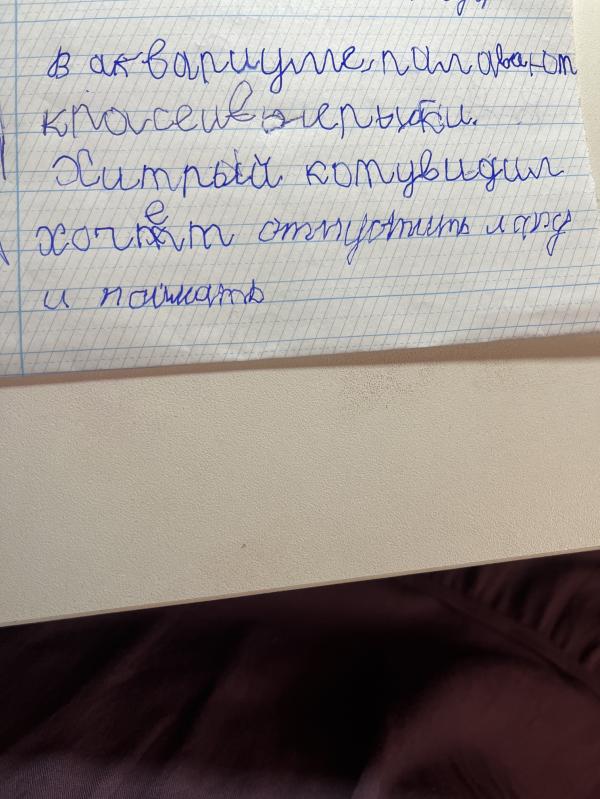 в аквариуме палавают
красеивые рыбки.
Хитрый кот увидил
хочет отпустить лапу
и поймать